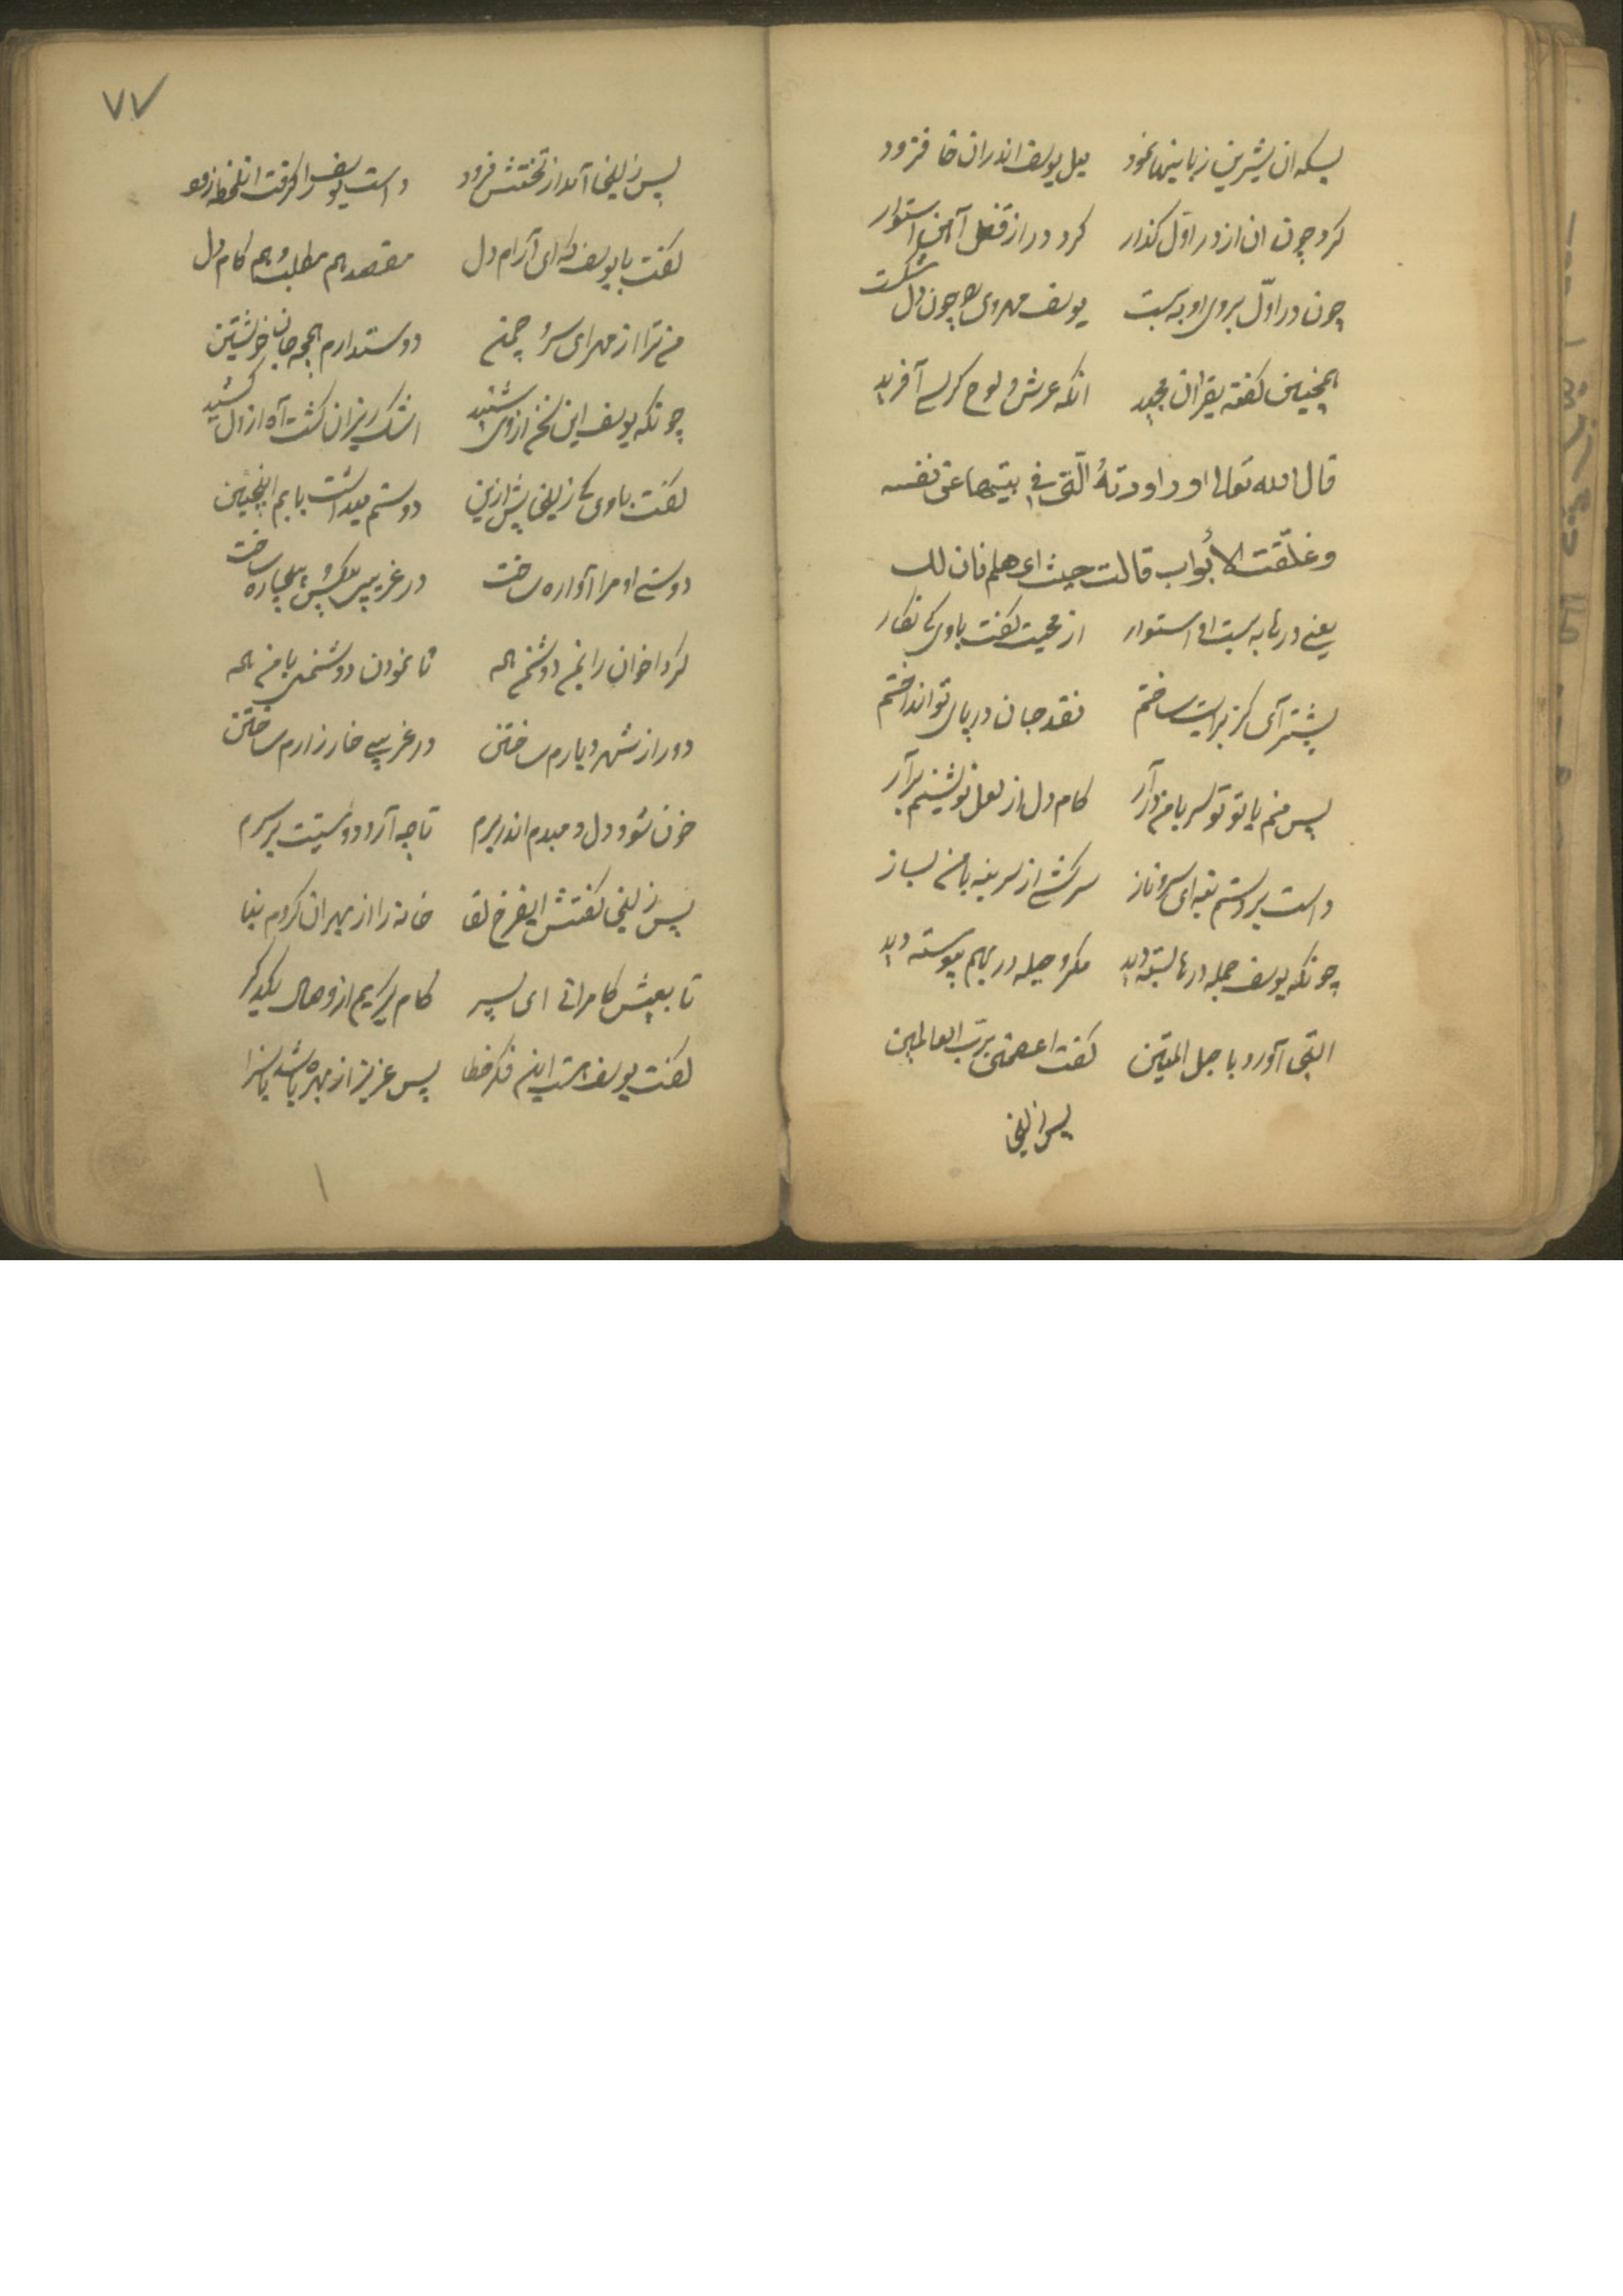 بسکه ان شیرین زبانیها نمود میل یوسف اندران خا فزود
کرد چون ان از در اول کذار کرد در از قفل آهن استوار
چون در اول بروی او به بست یوسف مهروی چون دل شکست
همچنین کفته بقران مجید انکه عرش و لوح کرسی آفرید
قال الله تعالی اوراودتهُ الّتی فی بیتها عن نفسه
وغلّقت الأبواب قالت هیث ای هلم فان لك
یعنی درها به بست او استوار از محبت کفت باوی کای نکار
پیشتر آی کز برایت ساختم نقد جان در پای تو انداختم
پس منم با تو تو سر با من درآر کام دل از لعل نوشینم برآر
دست بر دستم بنه ای سرو ناز سرکشی از سر بنه با من بساز
چونکه یوسف جمله درها بسته دید مکر و حیله در بهم پیوسته دید
التجی آورد با حبل المتین کفت اعصمنی برب العالمین
پس زلیخا
٧٧
پس زلیخا آمد از تختش فرود دست یوسف را کرفت انلحظه زود
کفت با یوسف که ای آرام دل مقصد هم مطلب و هم کام دل
من ترا از مهر ای سرو چمن دوستدارم همچه جان خویشتن
چونکه یوسف این سخن از وی شنید اشک ریزان کشت آه از دل کشید
کفت باوی کای زلیخا پیش ازین دوستم میداشت بابم اینچنین
دوستی او مرا آواره ساخت در غریبی بیکس و بیچاره ساخت
کرد اخوان را بمن دوشمن همه تا نمودن دوشمنی با من همه
دور از شهر و دیارم ساختن در غریبی خار زارم ساختن
خون شود دل دمبدم اندر برم تا چه آرد دوستیت بر سرم
پس زلیخا کفتش ایفرخ لقا خانه را از بهر ان کردم بنا
تا بعیش کامرانی ای پسر کام برکیریم از وصال یکدکر
کفت یوسف هست اینم فکر خطا پس عزیز از بهره باشد یا سزا